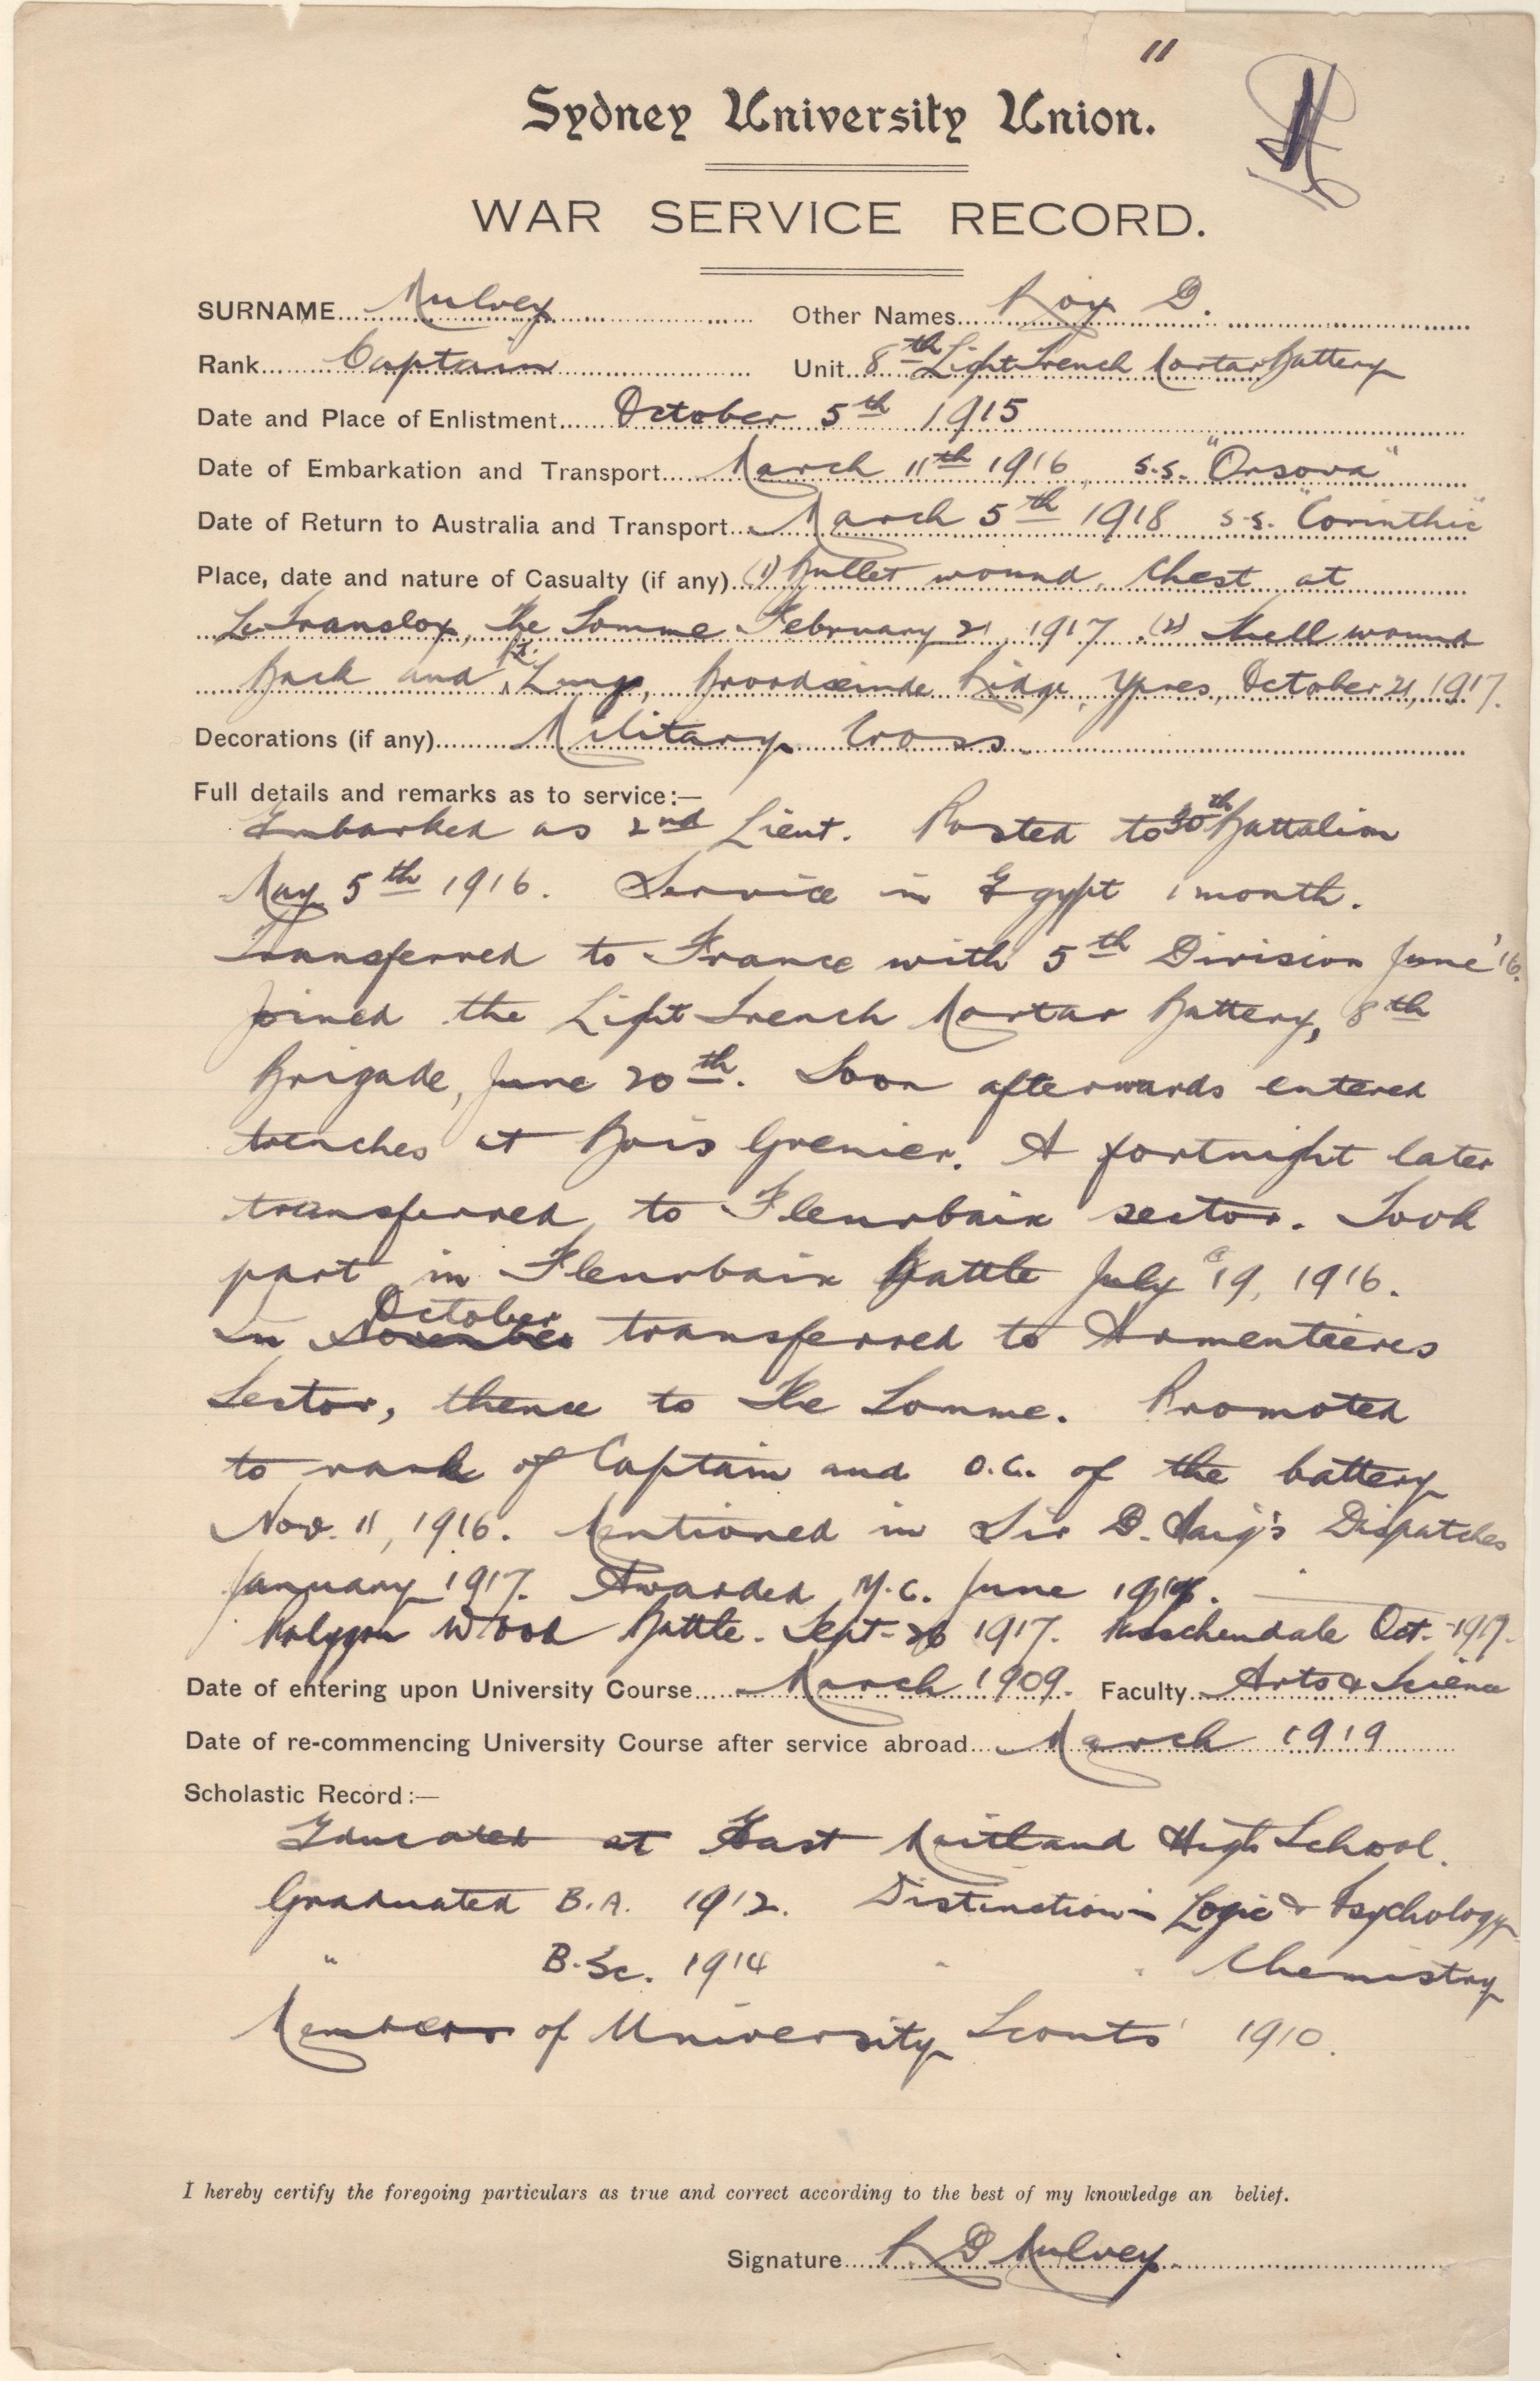 "
Sydney University Union.
WAR SERVICE RECORD.
SURNAME Mulvey Other Names Roy D.
Rank Captain Unit 8th Light Trench Mortar Battery
Date and Place of Enlistment October 5th 1915
Date of Embarkation and Transport March 11th 1916, s.s. "Orsova"
Date of Return to Australia and Transport March 5th 1918 s.s. "Corinthic"
Place, date and nature of Casualty (if any) (1) Bullet wound, Chest at
Le Transloy, The Somme February 21, 1917. (2) Shell wound
Back and Lung, Broodseinde Ridge, Ypres, October 21, 1917.
Decorations (if any) Military Cross.
Full details and remarks as to service:—
Embarked as 2nd Lieut. Posted to 30th Battalion
May 5th 1916. Service in Egypt 1 month.
Transferred to France with 5th Division June '16.
Joined the Light Trench Mortar Battery, 8th
Brigade, June 20th. Soon afterwards entered
trenches at Bois Grenier. A fortnight later
transferred to Fleurbaix sector. Took
part in Fleurbaix Battle July 19, 1916.
In November October transferred to Armentieres
Sector, thence to The Somme. Promoted
to rank of Captain and O.C. of the battery
Nov. 11, 1916. Mentioned in Sir D. Haig's Dispatches
January 1917. Awarded M.C. June
Polygon Wood Battle. Sept. 26 1917. Passchendale Oct. 1917.
Date of entering upon University Course March 1909. Faculty Arts & Science
Date of re-commencing University Course after service abroad March 1919
Scholastic Record:—
Educated at East Maitland High School.
Graduated B.A. 1912. Distinction in Logic & Psychology
" B.Sc. 1914 " " Chemistry
Member of University Scouts' 1910.
I hereby certify the foregoing particulars as true and correct according to the best of my knowledge an belief.
Signature R D Mulvey